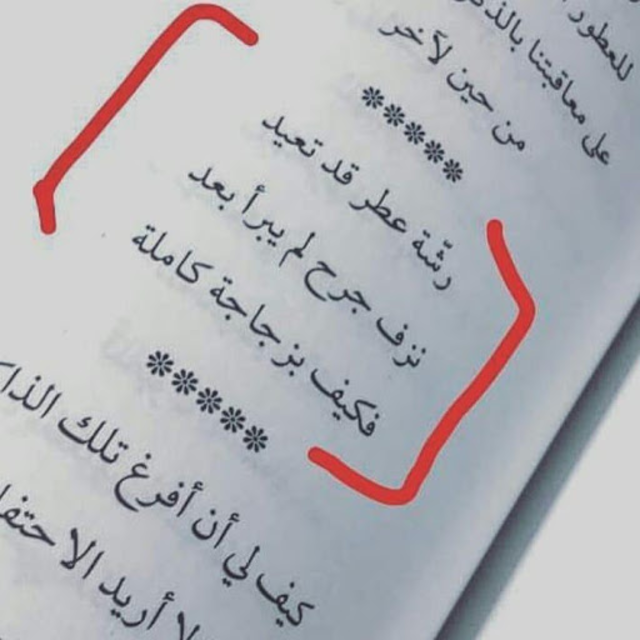 للعطور
على معاقبتنا
من حين لآخر
*****
رشّة عطر قد تعيد
نزف جرح لم يبرأ بعد
فكيف بزجاجة كاملة
*****
كيف لي أن أفرغ تلك
لا أريد